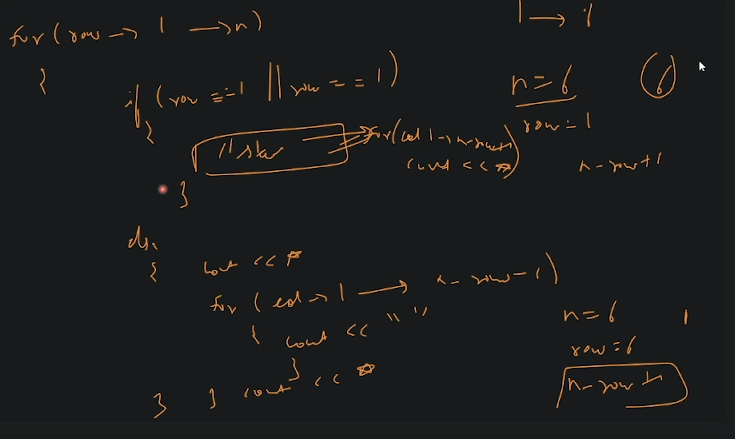 for ( row → 1 → n )
{
if ( row == 1 || row == 1 )
{
// star
for ( col 1 → n-row+1 )
cout << *
}
{
cout << *
for ( col → 1 → n - row - 1 )
{ cout << " "
}
} cout << *
}
1 → 1
n = 6
6
row = 1
n - row + 1
n = 6
1
row = 6
n - row + 1